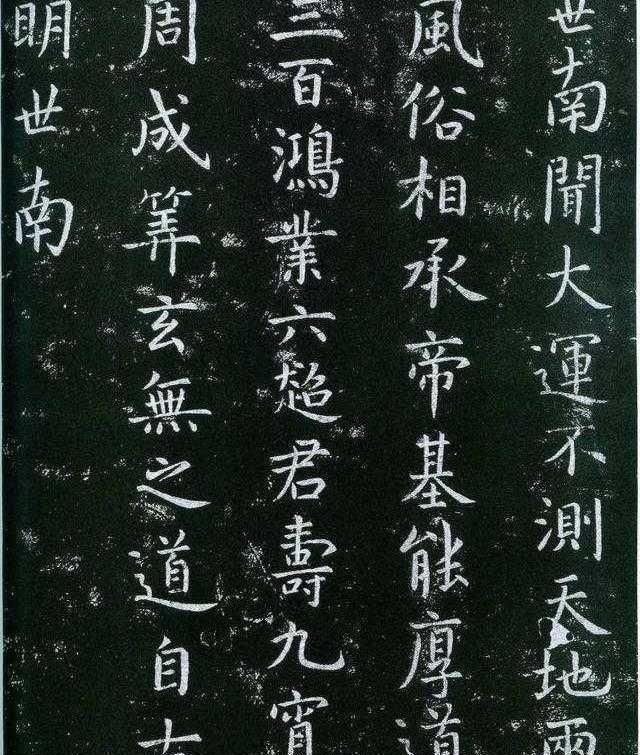 世南聞大運不測天地兩
風俗相承帝基能厚道
三百鴻業六超君壽九霄
周成筭玄無之道自古
明世南